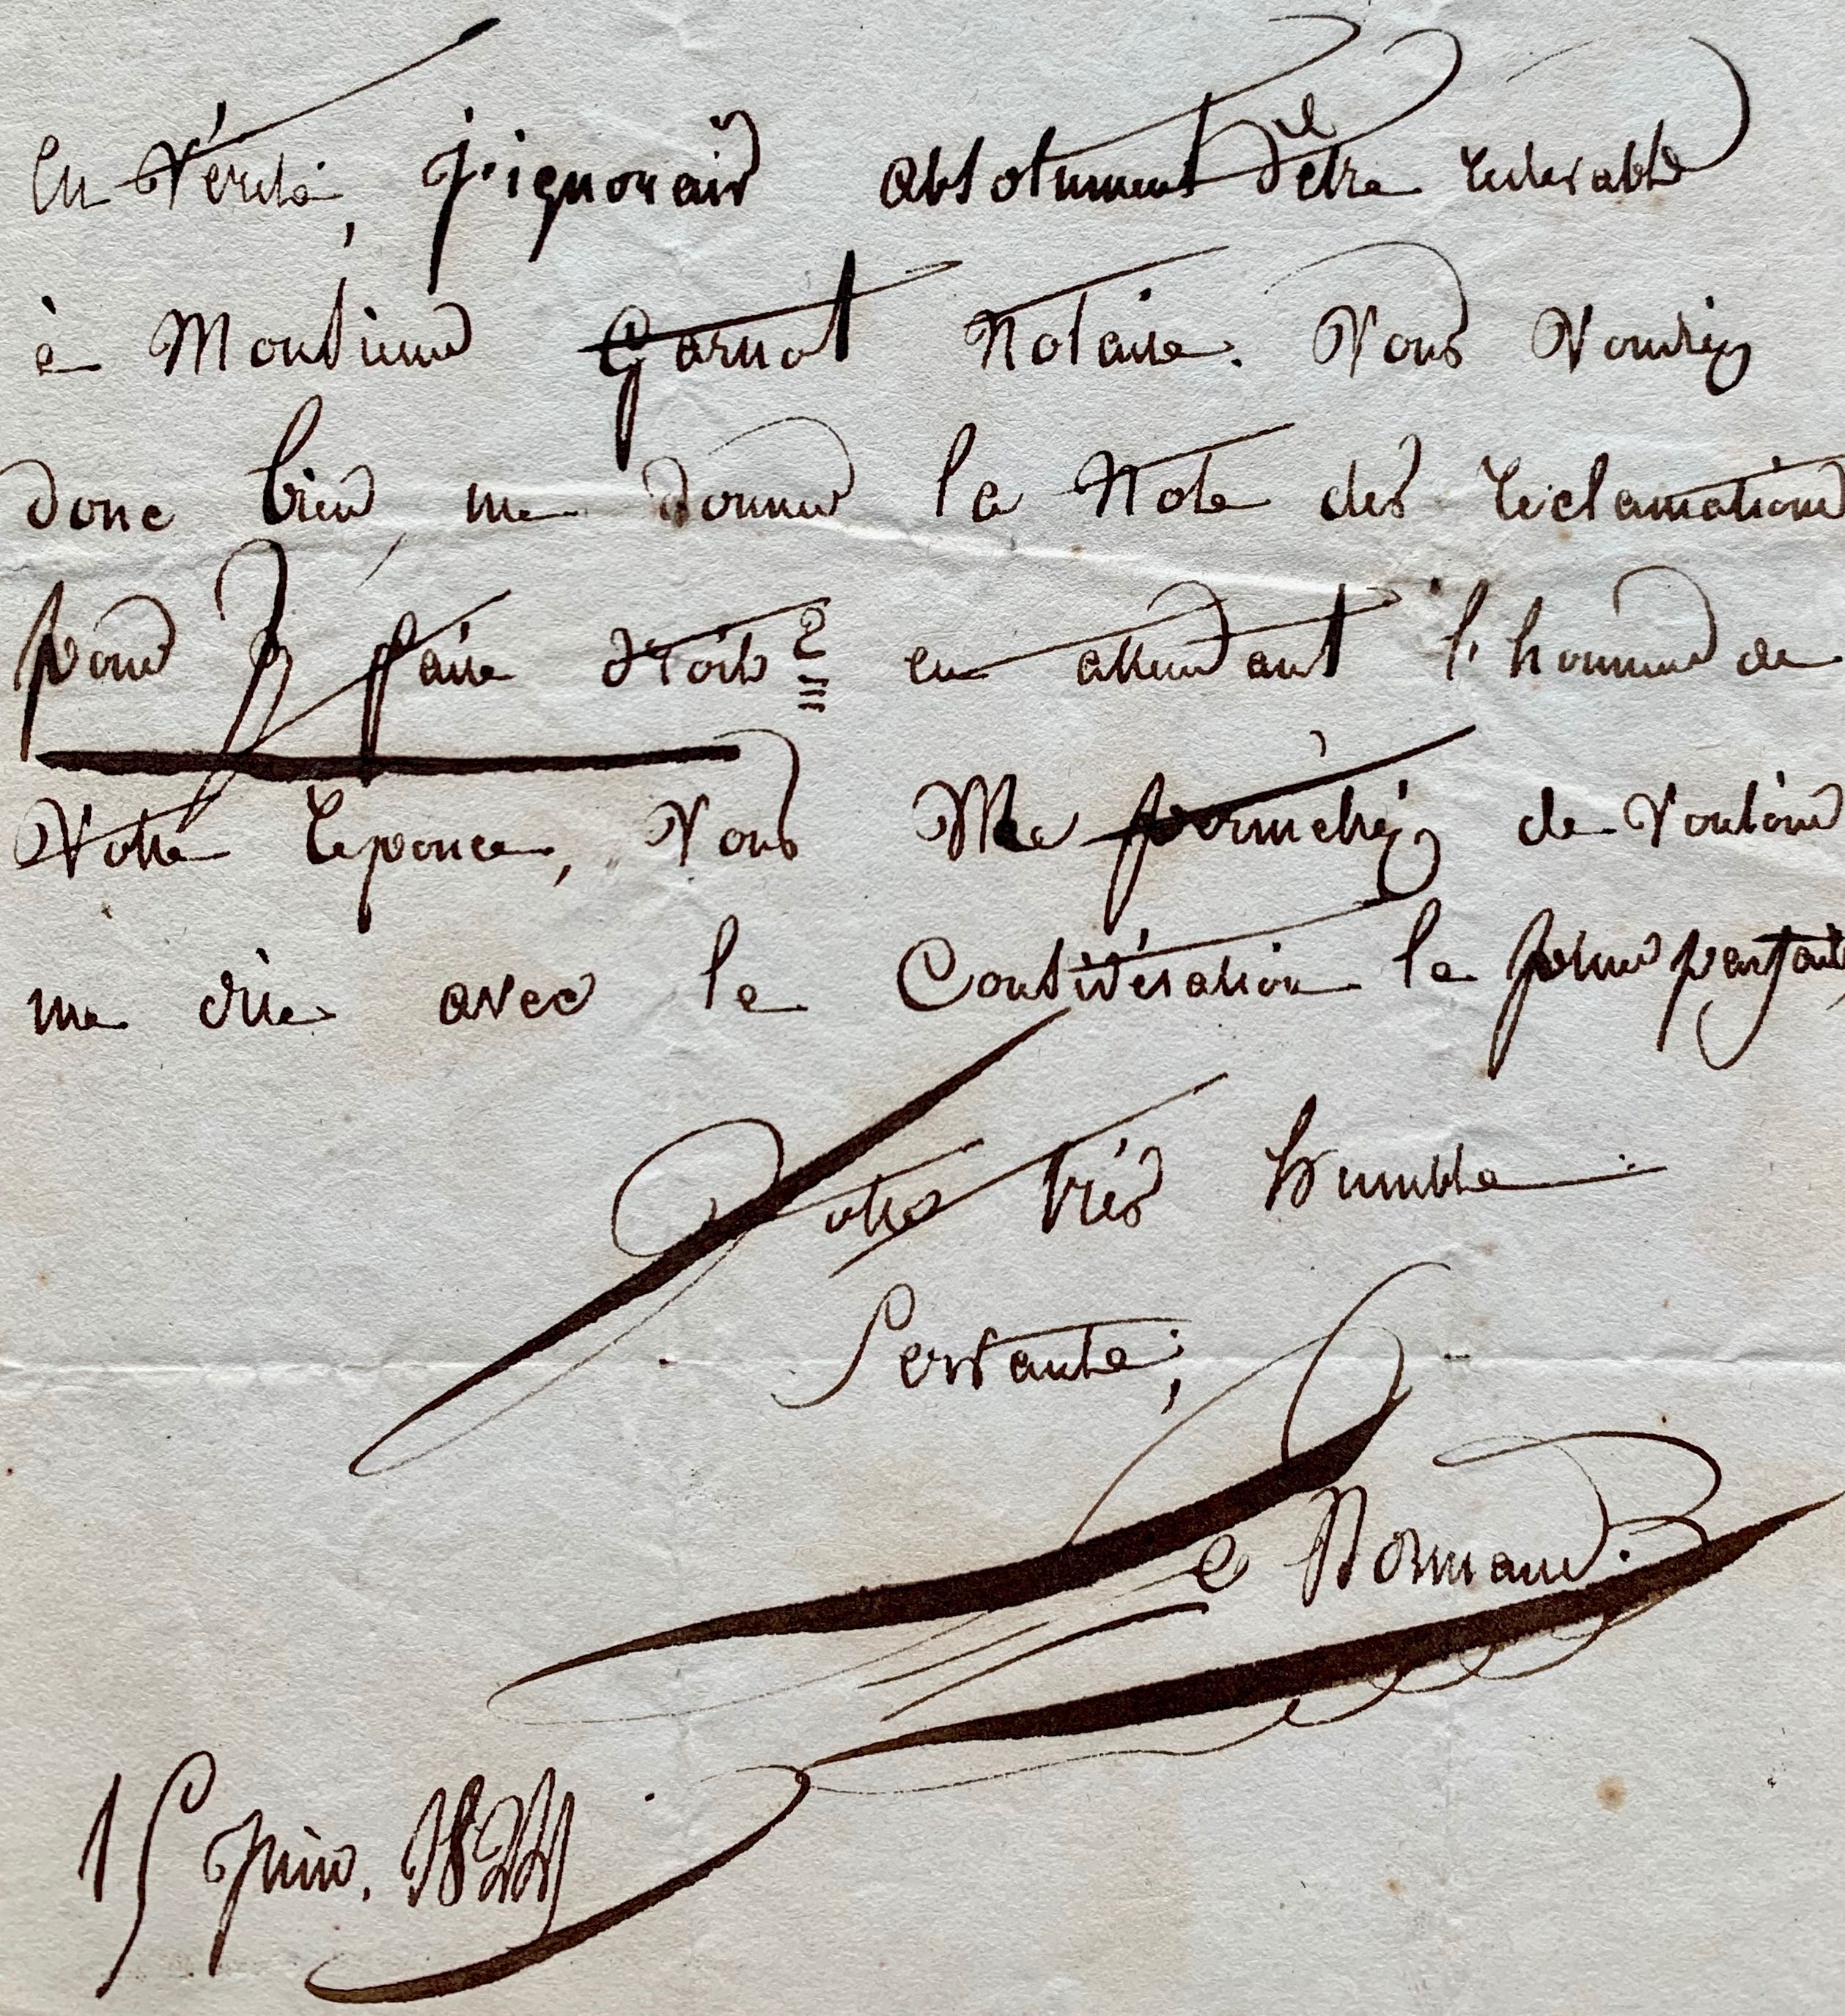 En Vérité, j'ignorais absolument d'être redevable
à Monsieur Garnot Notaire. Vous Voudrez
donc bien me donner la Note des réclamations
pour y faire droit ? en attendant l'honneur de
Votre réponce, Vous Me permettrez de Vouloir
me dire avec la Considération la plus parfaite,
Votre très humble
Servante,
Le Normand.
15 juin. 1824